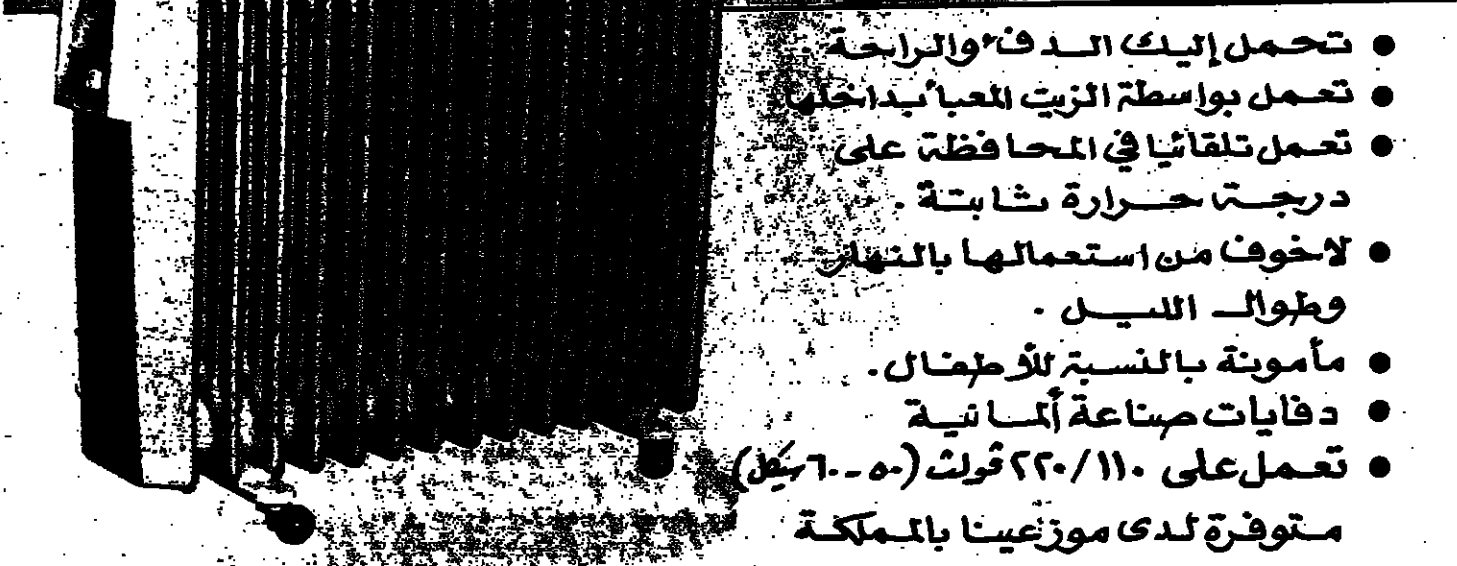 ● تحمل إليك الدفء والراحة .
● تعمل بواسطة الزيت المعبأ بداخلها
● تعمل تلقائيا في المحافظة على
درجة حرارة ثابتة .
● لاخوف من استعمالها بالنهار
وطوال الليل .
● مأمونة بالنسبة للأطفال .
● دفايات صناعة ألمانية
● تعمل على ٢٢٠/١١٠ ڤولت (٥٠ - ٦٠ سيكل)
متوفرة لدى موزعينا بالمملكة